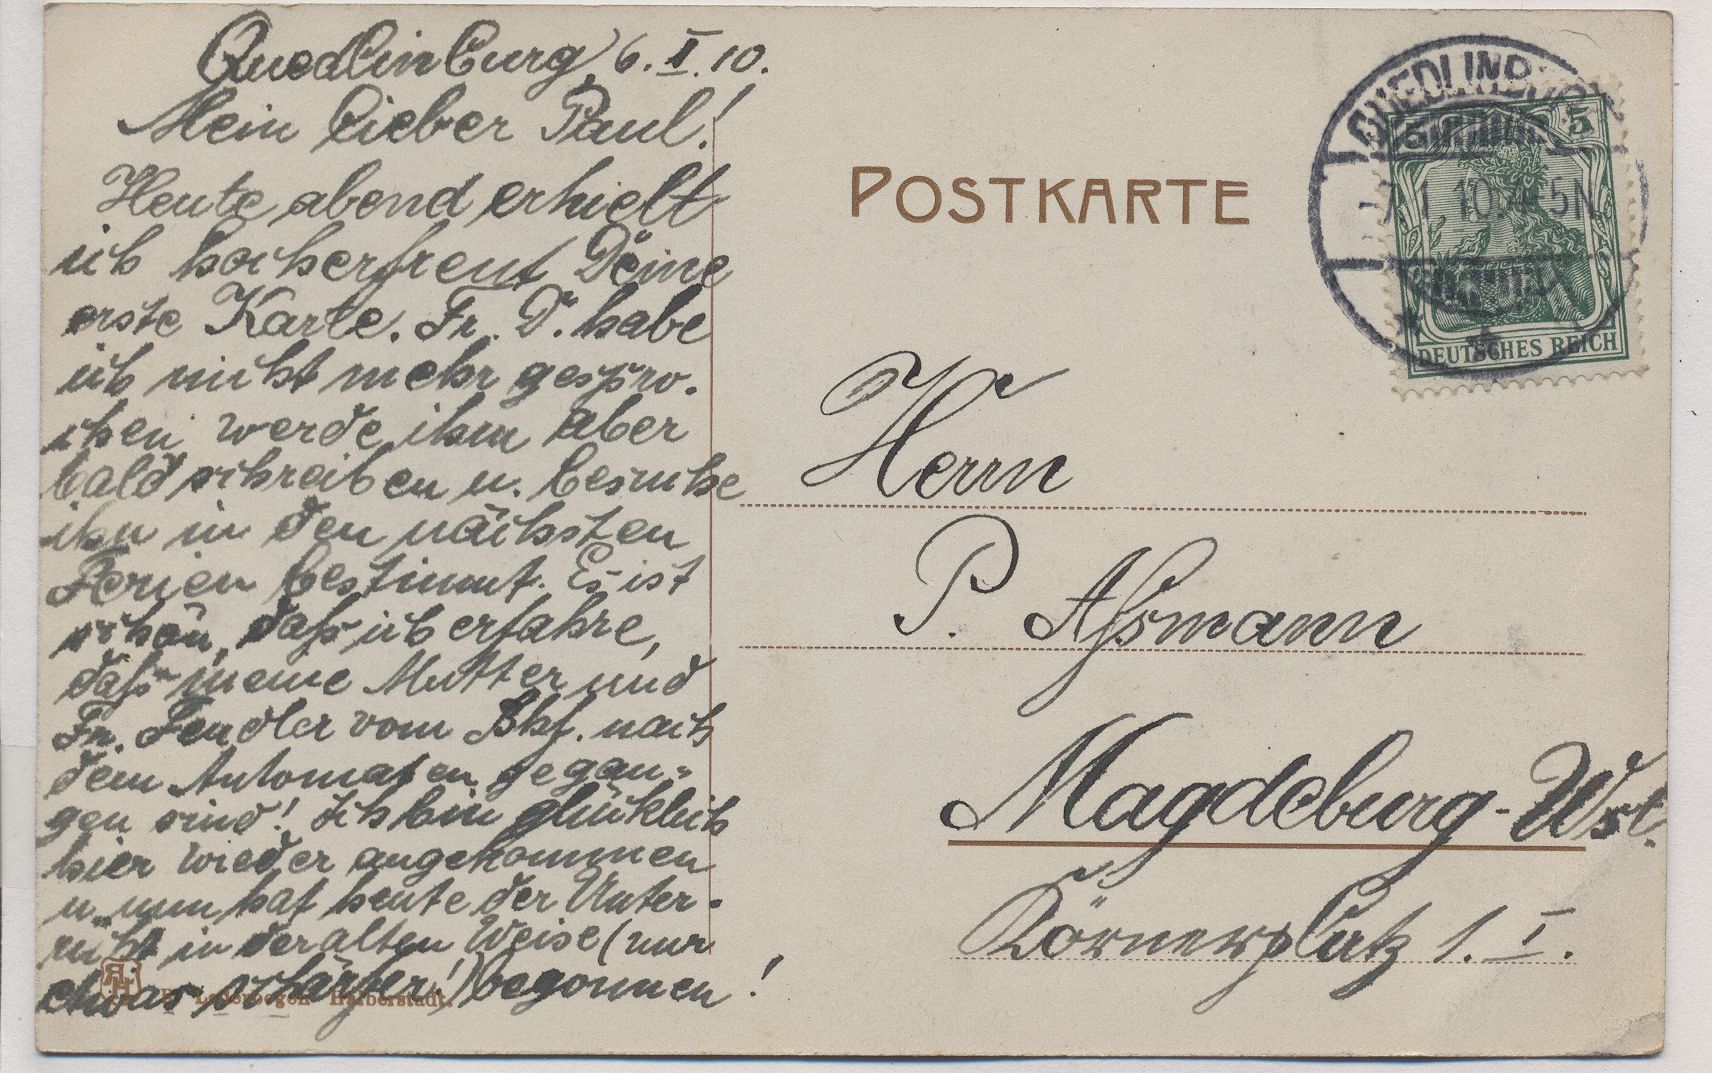 Quedlinburg, 6. I. 10.
Mein lieber Paul!
Heute abend erhielt
ich hocherfreut Deine
erste Karte. Fr. D. habe
ich nicht mehr gespro-
chen werde ihm aber
bald schreiben u. besuche
ihn in den nächsten
Ferien bestimmt. Es ist
schön, daß ich erfahre,
daß meine Mutter und
Fr. Fendler vom Bhf. nach
dem Automaten gegan-
gen sind! Ich bin glücklich
hier wieder angekommen
u. nun hat heute der Unter-
richt in der alten Weise (nur
etwas schärfer!) begonnen!
Lederbogen Halberstadt.
POSTKARTE
QUEDLINBURG
7.1.10.4-5N
5 5
DEUTSCHES REICH
Herrn
P. Aßmann
Magdeburg-Wst.
Körnerplatz 1. I.